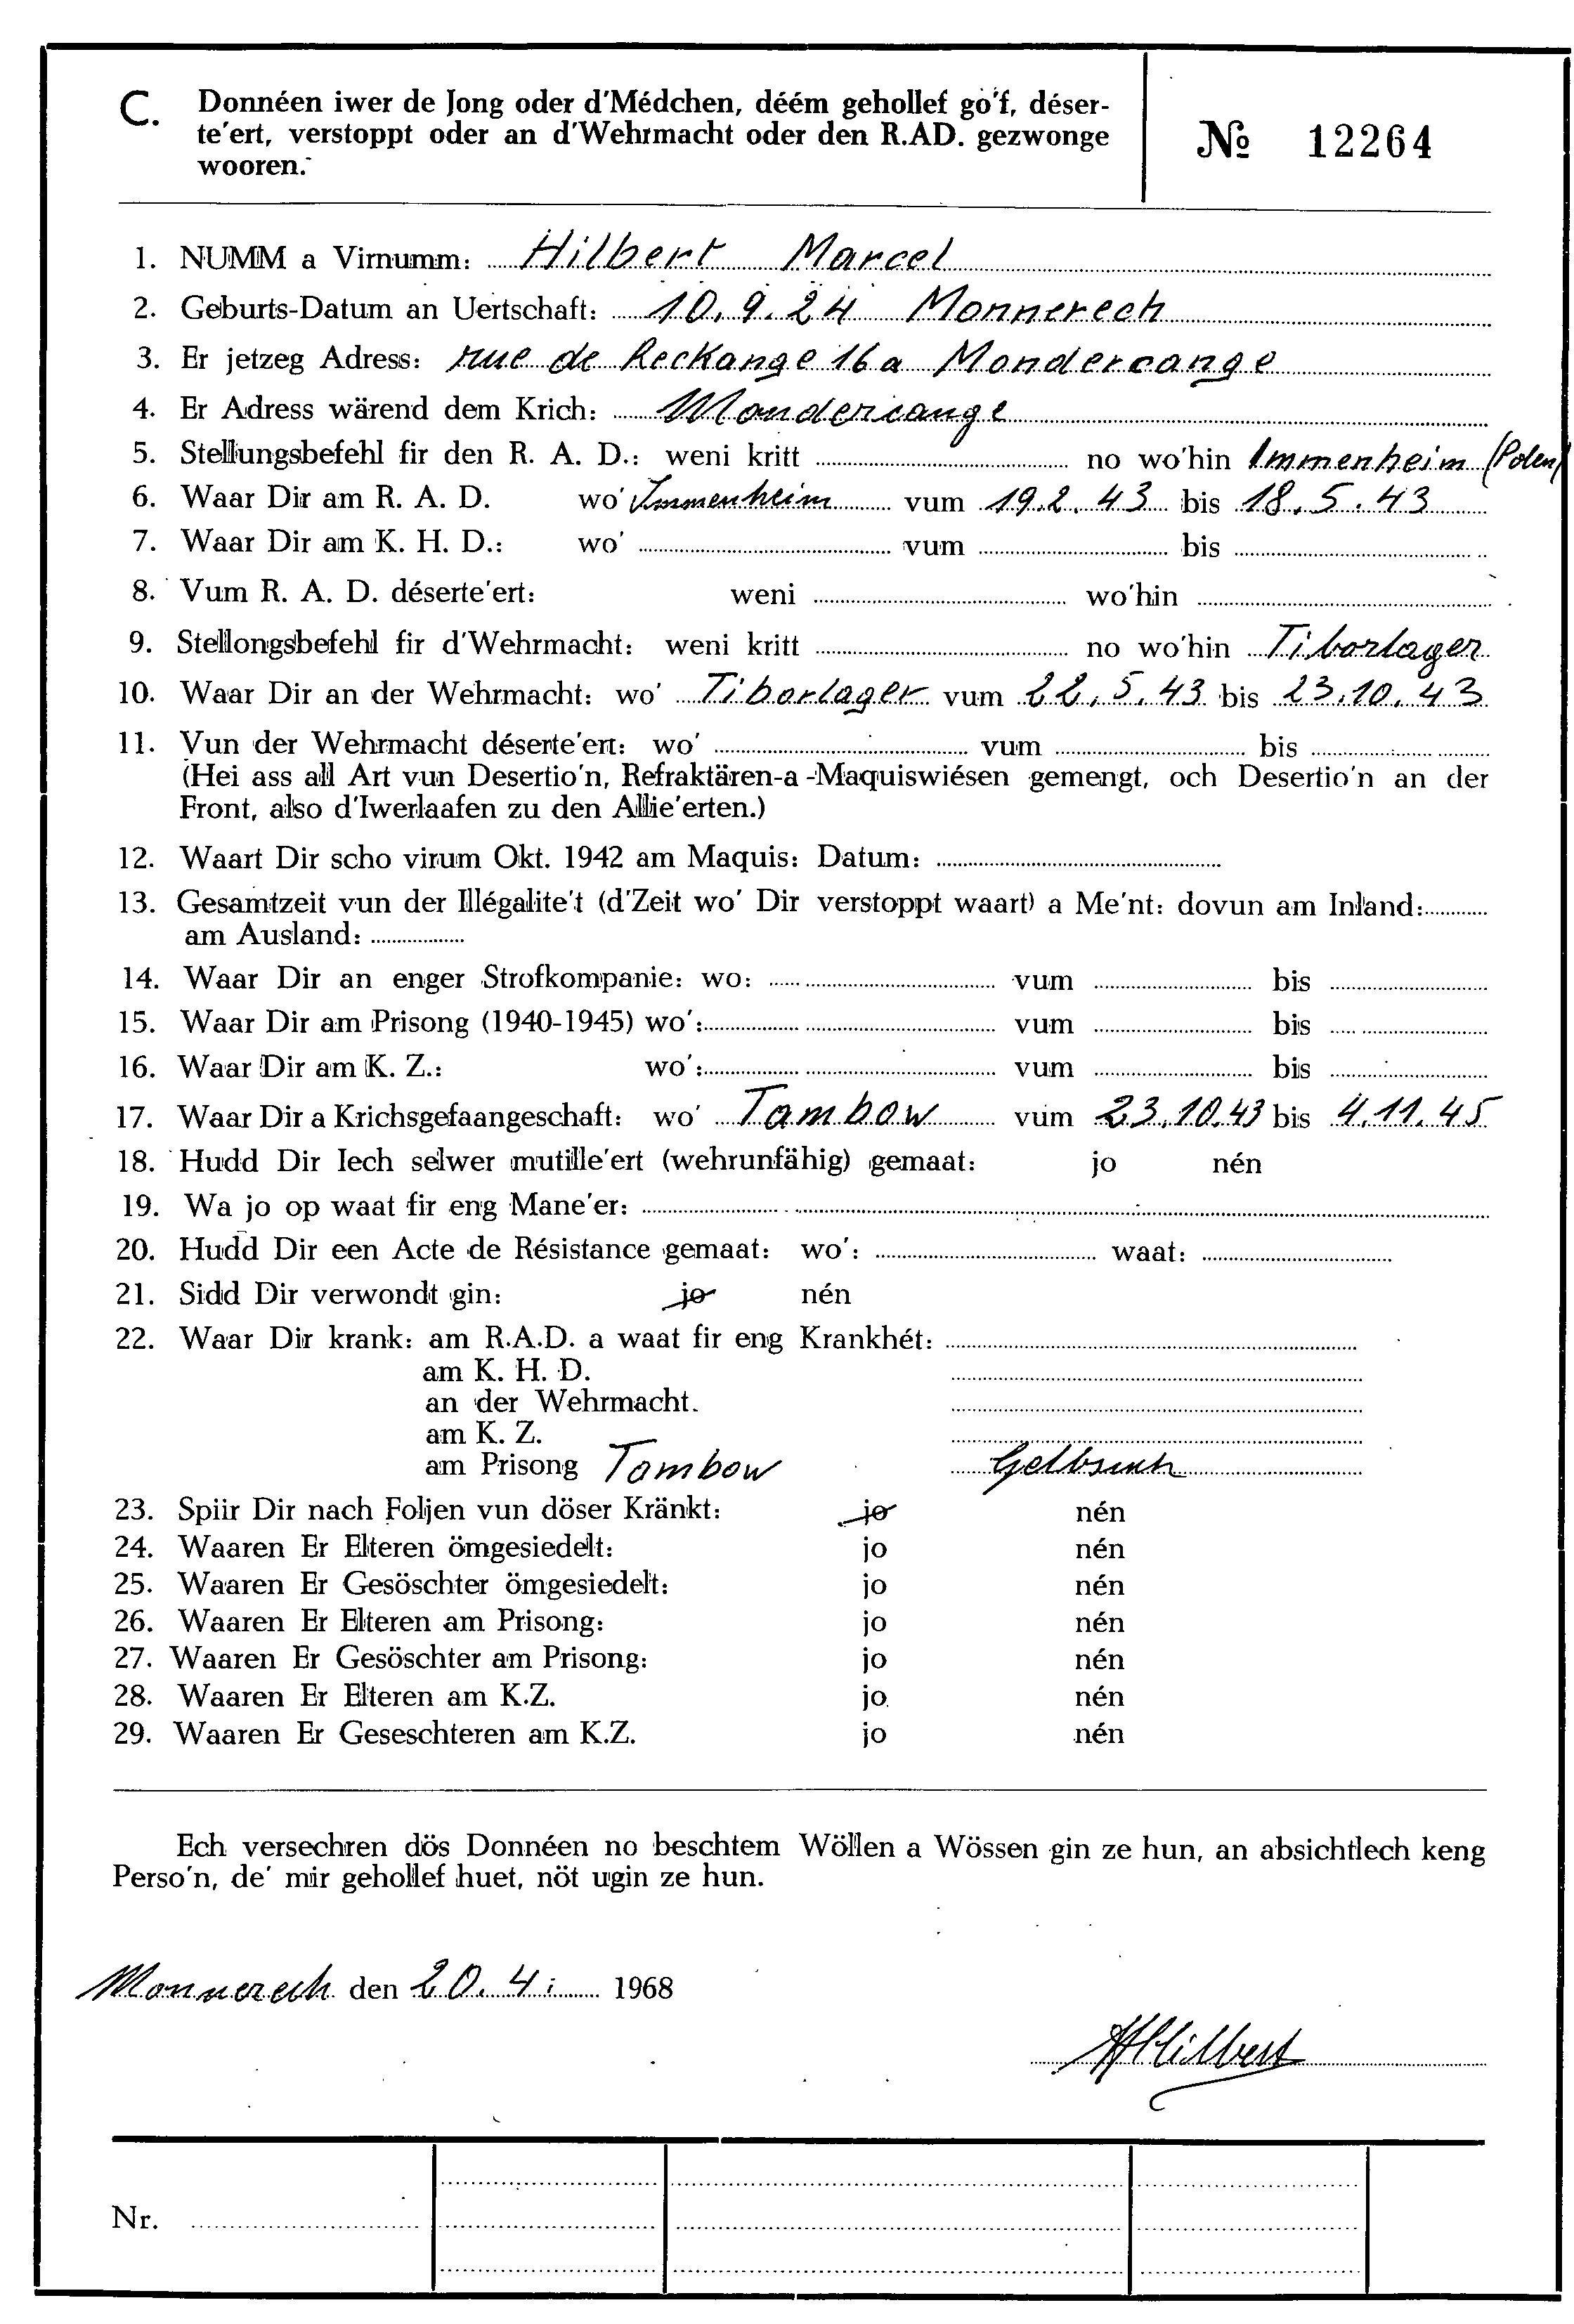 C. Donnéen iwer de Jong oder d'Médchen, déém gehollef go'f, déser-
te'ert, verstoppt oder an d'Wehrmacht oder den R.AD. gezwonge
wooren.
№ 12264
1. NUMM a Virnumm: Hilbert Marcel
2. Geburts-Datum an Uertschaft: 10.9.24 Monnerech
3. Er jetzeg Adress: rue de Reckange 16a Mondercange
4. Er Adress wärend dem Krich: Mondercange
5. Stellungsbefehl fir den R. A. D.: weni kritt no wo'hin Immenheim (Polen)
6. Waar Dir am R. A. D. wo' Immenheim vum 19.2.43 bis 18.5.43
7. Waar Dir am K. H. D.: wo' vum bis
8. Vum R. A. D. déserte'ert: weni wo'hin
9. Stellongsbefehl fir d'Wehrmacht: weni kritt no wo'hin Tiborlager
10. Waar Dir an der Wehrmacht: wo' Tiborlager vum 22.5.43 bis 23.10.43
11. Vun der Wehrmacht déserte'ert: wo' vum bis
(Hei ass all Art vun Desertio'n, Refraktären-a -Maquiswiésen gemengt, och Desertio'n an der
Front, also d'Iwerlaafen zu den Allie'erten.)
12. Waart Dir scho virum Okt. 1942 am Maquis: Datum:
13. Gesamtzeit vun der Illégalite't (d'Zeit wo' Dir verstoppt waart) a Me'nt: dovun am Inland:
am Ausland:
14. Waar Dir an enger Strofkompanie: wo: vum bis
15. Waar Dir am Prisong (1940-1945) wo': vum bis
16. Waar Dir am K. Z.: wo': vum bis
17. Waar Dir a Krichsgefaangeschaft: wo' Tambow vum 23.10.43 bis 4.11.45
18. Hudd Dir Iech selwer mutille'ert (wehrunfähig) gemaat: jo nén
19. Wa jo op waat fir eng Mane'er:
20. Hudd Dir een Acte de Résistance gemaat: wo': waat:
21. Sidd Dir verwondt gin: jo nén
22. Waar Dir krank: am R.A.D. a waat fir eng Krankhét:
am K. H. D.
an der Wehrmacht.
am K. Z.
am Prisong Tambow Gelbsucht
23. Spiir Dir nach Foljen vun döser Kränkt: jo nén
24. Waaren Er Elteren ömgesiedelt: jo nén
25. Waaren Er Gesöschter ömgesiedelt: jo nén
26. Waaren Er Elteren am Prisong: jo nén
27. Waaren Er Gesöschter am Prisong: jo nén
28. Waaren Er Elteren am K.Z. jo nén
29. Waaren Er Geseschteren am K.Z. jo nén
Ech versechren dös Donnéen no beschtem Wöllen a Wössen gin ze hun, an absichtlech keng
Perso'n, de' mir gehollef huet, nöt ugin ze hun.
Monnerech den 20.4. 1968
Hilbert
Nr.